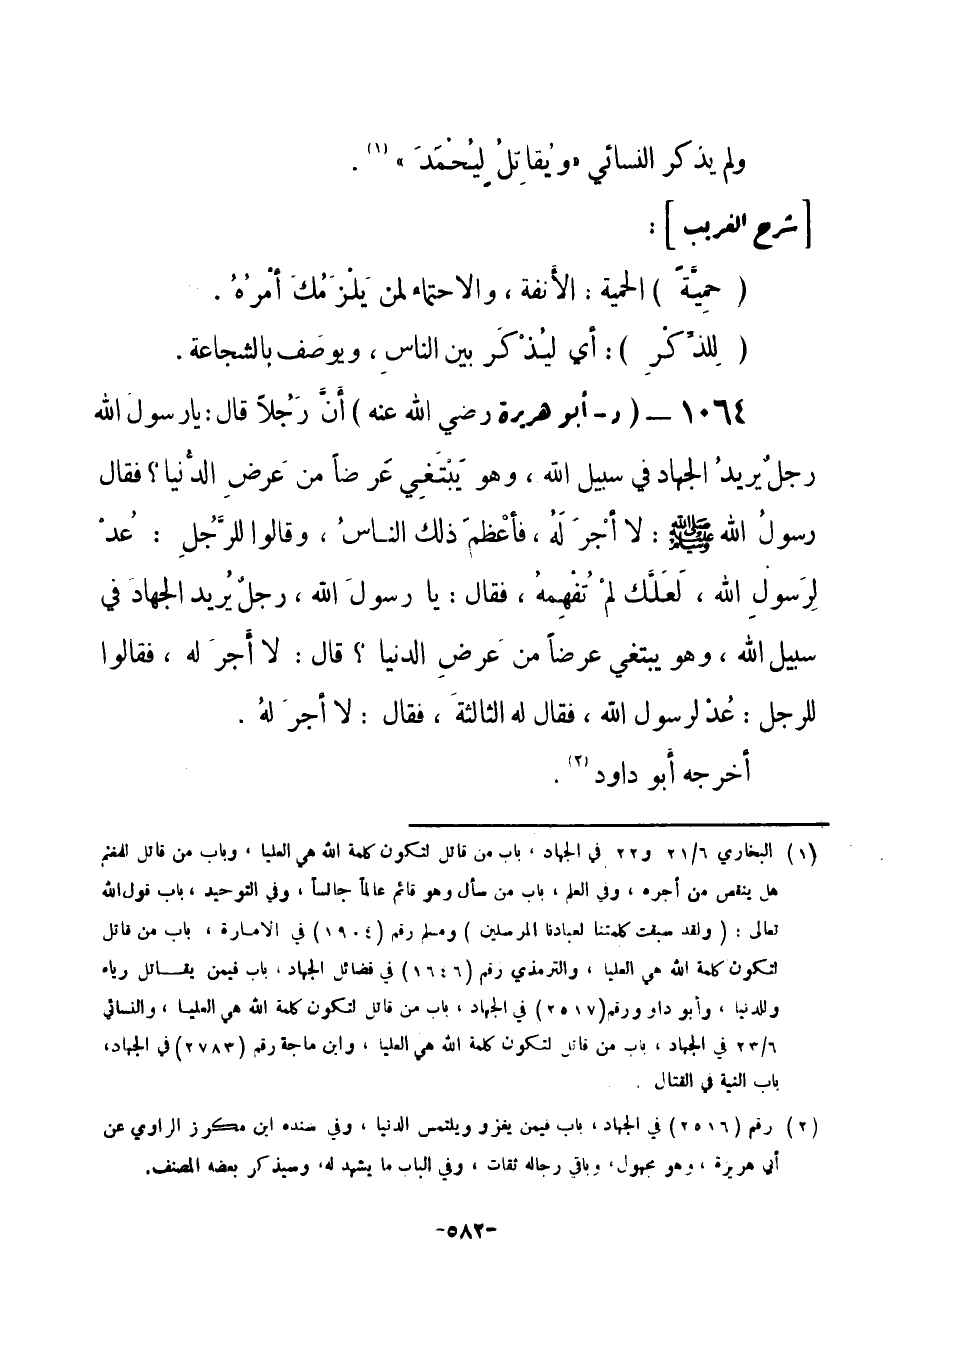 ولم يذكر النسائي «ويُقاتِلُ لِيُحْمَدَ» (١) .
[ شرح الغريب ] :
( حمِيَّةً ) الحمية : الأنفة ، والاحتماء لمن يَلْزَمُكَ أمْرُهُ .
( لِلذِّكْرِ ) : أي ليُذْكَر بين الناسِ ، ويوصَف بالشجاعة .
١٠٦٤ — ( د - أبو هريرة رضي الله عنه ) أنَّ رَجُلاً قال : يا رسولَ الله
رجلٌ يريدُ الجهاد في سبيل الله ، وهو يَبْتَغي عَرضاً من عَرضِ الدُّنيا ؟ فقال
رسولُ الله ﷺ : لا أجْرَ لَهُ ، فأعْظمَ ذلك الناسُ ، وقالوا للرَّجُلِ : عُدْ
لِرَسولِ الله ، لَعَلَّك لمْ تُفْهِمهُ ، فقال : يا رسولَ الله ، رجلٌ يُريد الجهادَ في
سبيل الله ، وهو يبتغي عرضاً من عَرضِ الدنيا ؟ قال : لا أجرَ له ، فقالوا
للرجل : عُدْ لرسول الله ، فقال له الثالثةَ ، فقال : لا أجرَ لهُ .
أخرجه أبو داود (٢) .
(١) البخاري ٢١/٦ و٢٢ في الجهاد ، باب من قاتل لتكون كلمة الله هي العليا ، وباب من قاتل للمغنم
هل ينقص من أجره ، وفي العلم ، باب من سأل وهو قائم عالماً جالساً ، وفي التوحيد ، باب قول الله
تعالى : ( ولقد سبقت كلمتنا لعبادنا المرسلين ) ومسلم رقم (١٩٠٤) في الامارة ، باب من قاتل
لتكون كلمة الله هي العليا ، والترمذي رقم (١٦٤٦) في فضائل الجهاد ، باب فيمن يقاتل رياء
وللدنيا ، وأبو داو ورقم (٢٥١٧) في الجهاد ، باب من قاتل لتكون كلمة الله هي العليا ، والنسائي
٢٣/٦ في الجهاد ، باب من قاتل لتكون كلمة الله هي العليا ، وابن ماجة رقم (٢٧٨٣) في الجهاد،
باب النية في القتال .
(٢) رقم (٢٥١٦) في الجهاد ، باب فيمن يغزو ويلتمس الدنيا ، وفي سنده ابن مكرز الراوي عن
أبي هريرة ، وهو مجهول، وباقي رجاله ثقات ، وفي الباب ما يشهد له، وسيذكر بعضه المصنف.
-٥٨٢-